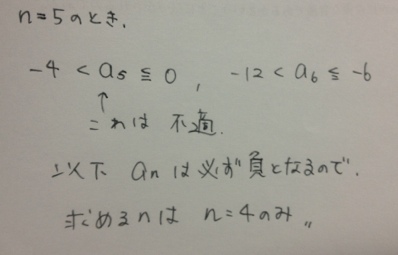 n=5のとき、
-4 < a5 ≦ 0 , -12 < a6 ≦ -6
↑
これは 不適.
以下 an は必ず負となるので.
求めるnは n=4のみ〃